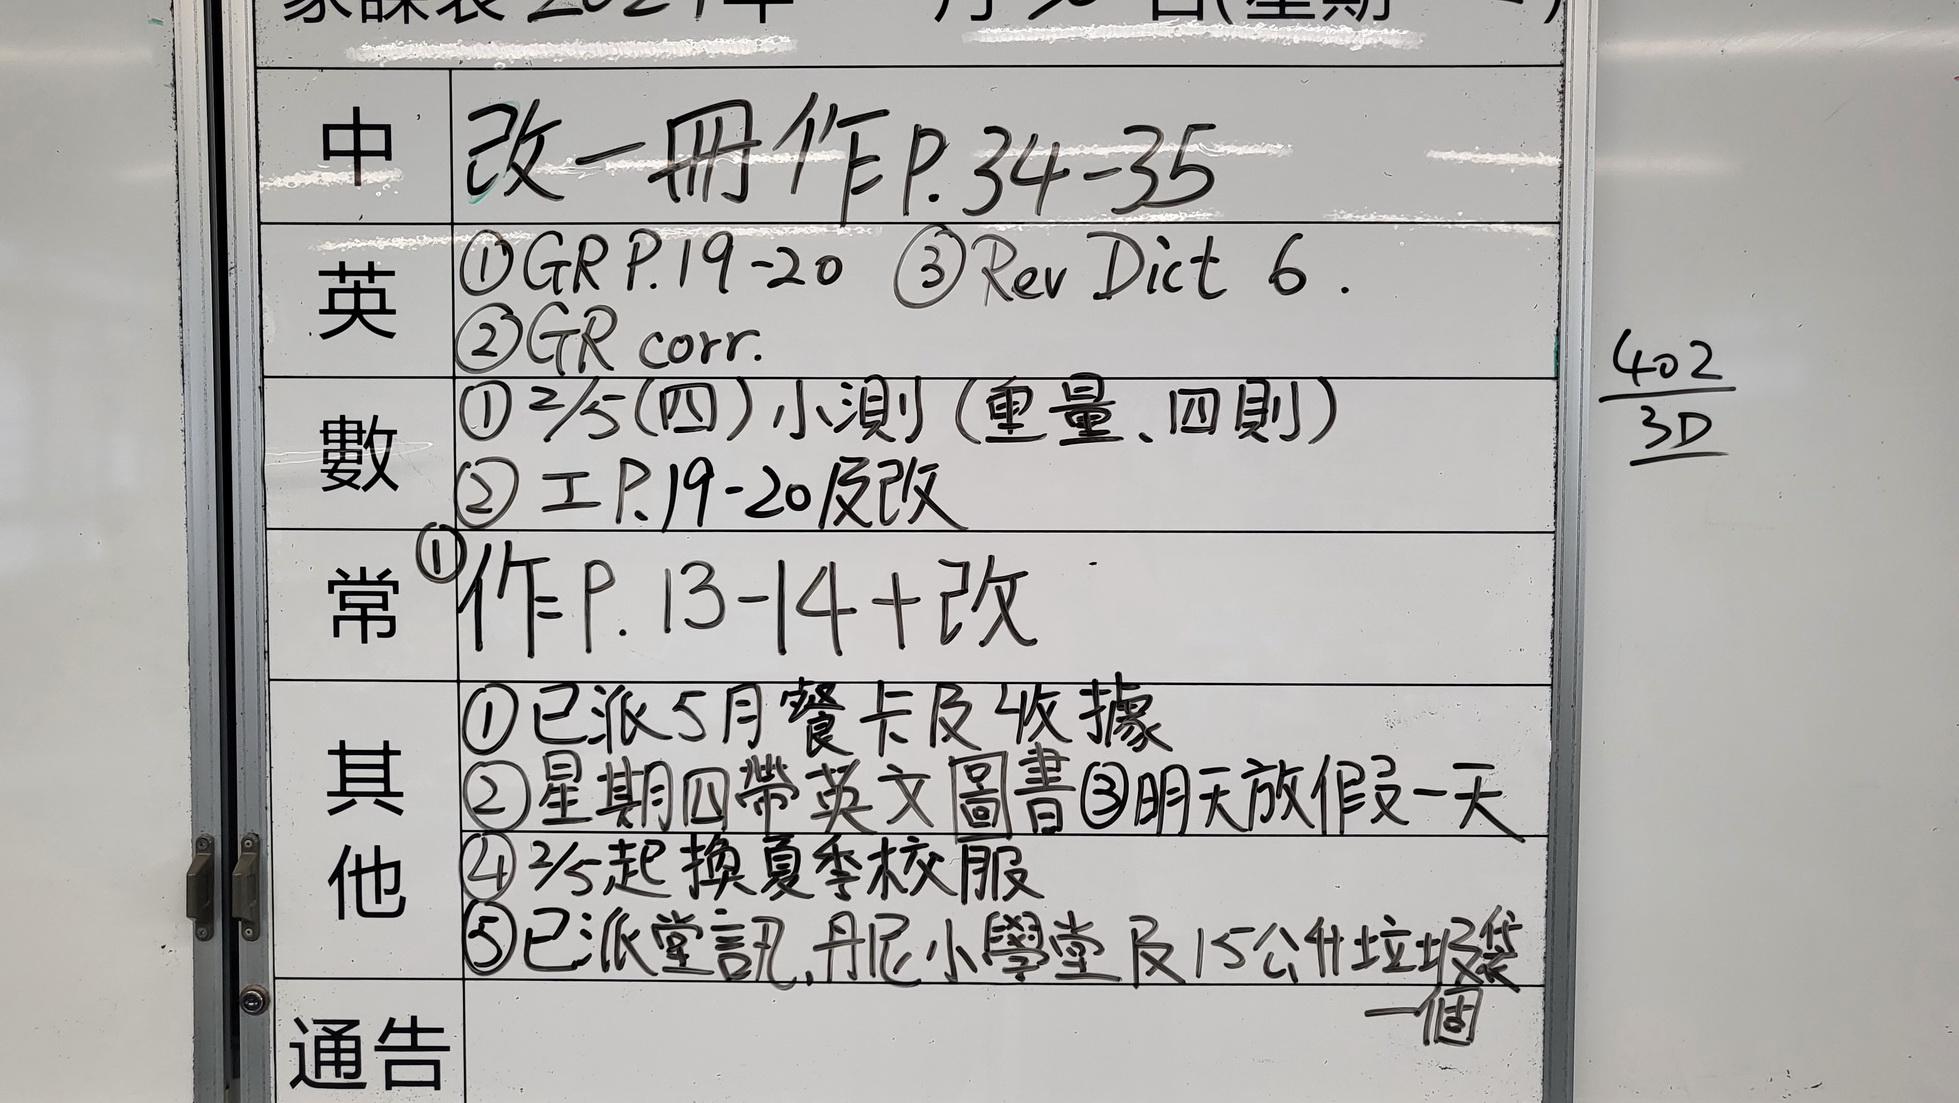 家課表 2024年 月30日(星期二)
中 改一冊作P.34-35
英 ①GR P.19-20 ③Rev Dict 6.
②GR corr.
數 ①2/5(四)小測(重量、四則)
②工P.19-20及改
常 ①作P.13-14+改
其他 ①已派5月餐卡及收據
②星期四帶英文圖書③明天放假一天
④2/5起換夏季校服
⑤已派堂訊,丹尼小學堂及15公升垃圾袋
一個
通告
402
3D